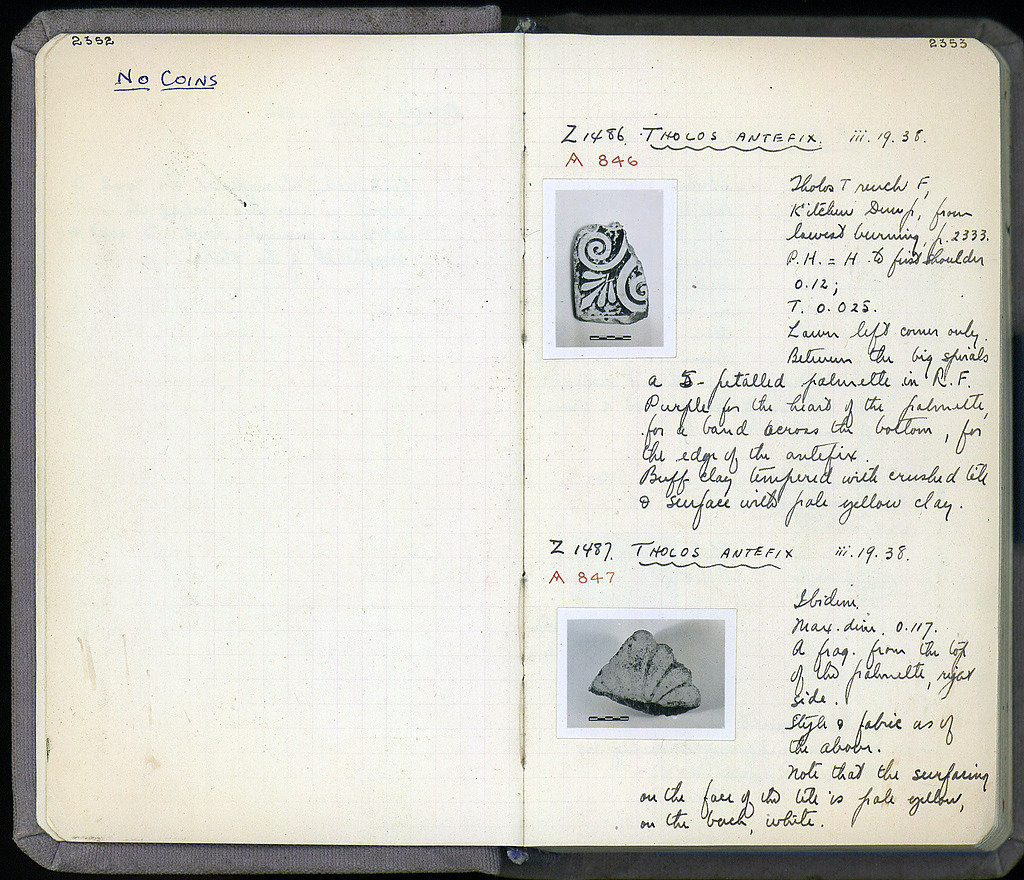 2352
NO COINS
2353
Z 1486. THOLOS ANTEFIX. iii.19.38.
A 846
Tholos Trench F,
Kitchen Dump, from
lowest burning, p. 2333.
P.H. = H. to first shoulder
0.12;
T. 0.025.
Lower left corner only.
Between the big spirals
a 5-petalled palmette in R.F.
Purple for the heart of the palmette,
for a band across the bottom, for
the edge of the antefix.
Buff clay tempered with crushed tile
& surface with pale yellow clay.
Z 1487. THOLOS ANTEFIX iii.19.38.
A 847
Ibidem.
Max. dim. 0.117.
A frag. from the top
of the palmette, right
side.
Style & fabric as of
the above.
Note that the surfacing
on the face of the tile is pale yellow,
on the back, white.